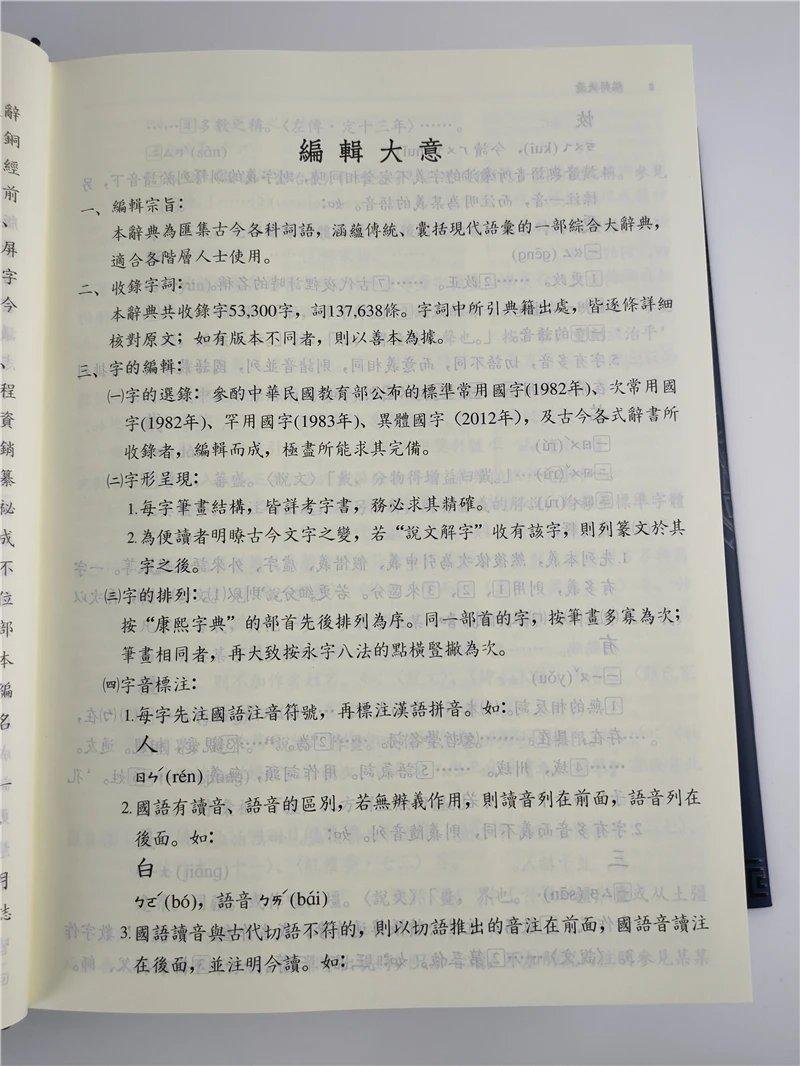 編輯大意
一、編輯宗旨：
本辭典為匯集古今各科詞語，涵蘊傳統、囊括現代語彙的一部綜合大辭典，
適合各階層人士使用。
二、收錄字詞：
本辭典共收錄字53,300字，詞137,638條。字詞中所引典籍出處，皆逐條詳細
核對原文；如有版本不同者，則以善本為據。
三、字的編輯：
㈠字的選錄：參酌中華民國教育部公布的標準常用國字(1982年)、次常用國
字(1982年)、罕用國字(1983年)、異體國字（2012年），及古今各式辭書所
收錄者，編輯而成，極盡所能求其完備。
㈡字形呈現：
1.每字筆畫結構，皆詳考字書，務必求其精確。
2.為便讀者明瞭古今文字之變，若“說文解字”收有該字，則列篆文於其
字之後。
㈢字的排列：
按“康熙字典”的部首先後排列為序。同一部首的字，按筆畫多寡為次；
筆畫相同者，再大致按永字八法的點橫豎撇為次。
㈣字音標注：
1.每字先注國語注音符號，再標注漢語拼音。如：
人
ㄖㄣˊ(rén)
2.國語有讀音、語音的區別，若無辨義作用，則讀音列在前面，語音列在
後面。如：
白
ㄅㄛˊ(bó)，語音ㄅㄞˊ(bái)
3.國語讀音與古代切語不符的，則以切語推出的音注在前面，國語音讀注
在後面，並注明今讀。如：
辭
銅
經
前
、
屏
字
今
、
程
資
銷
纂
祕
成
不
位
部
本
編
名